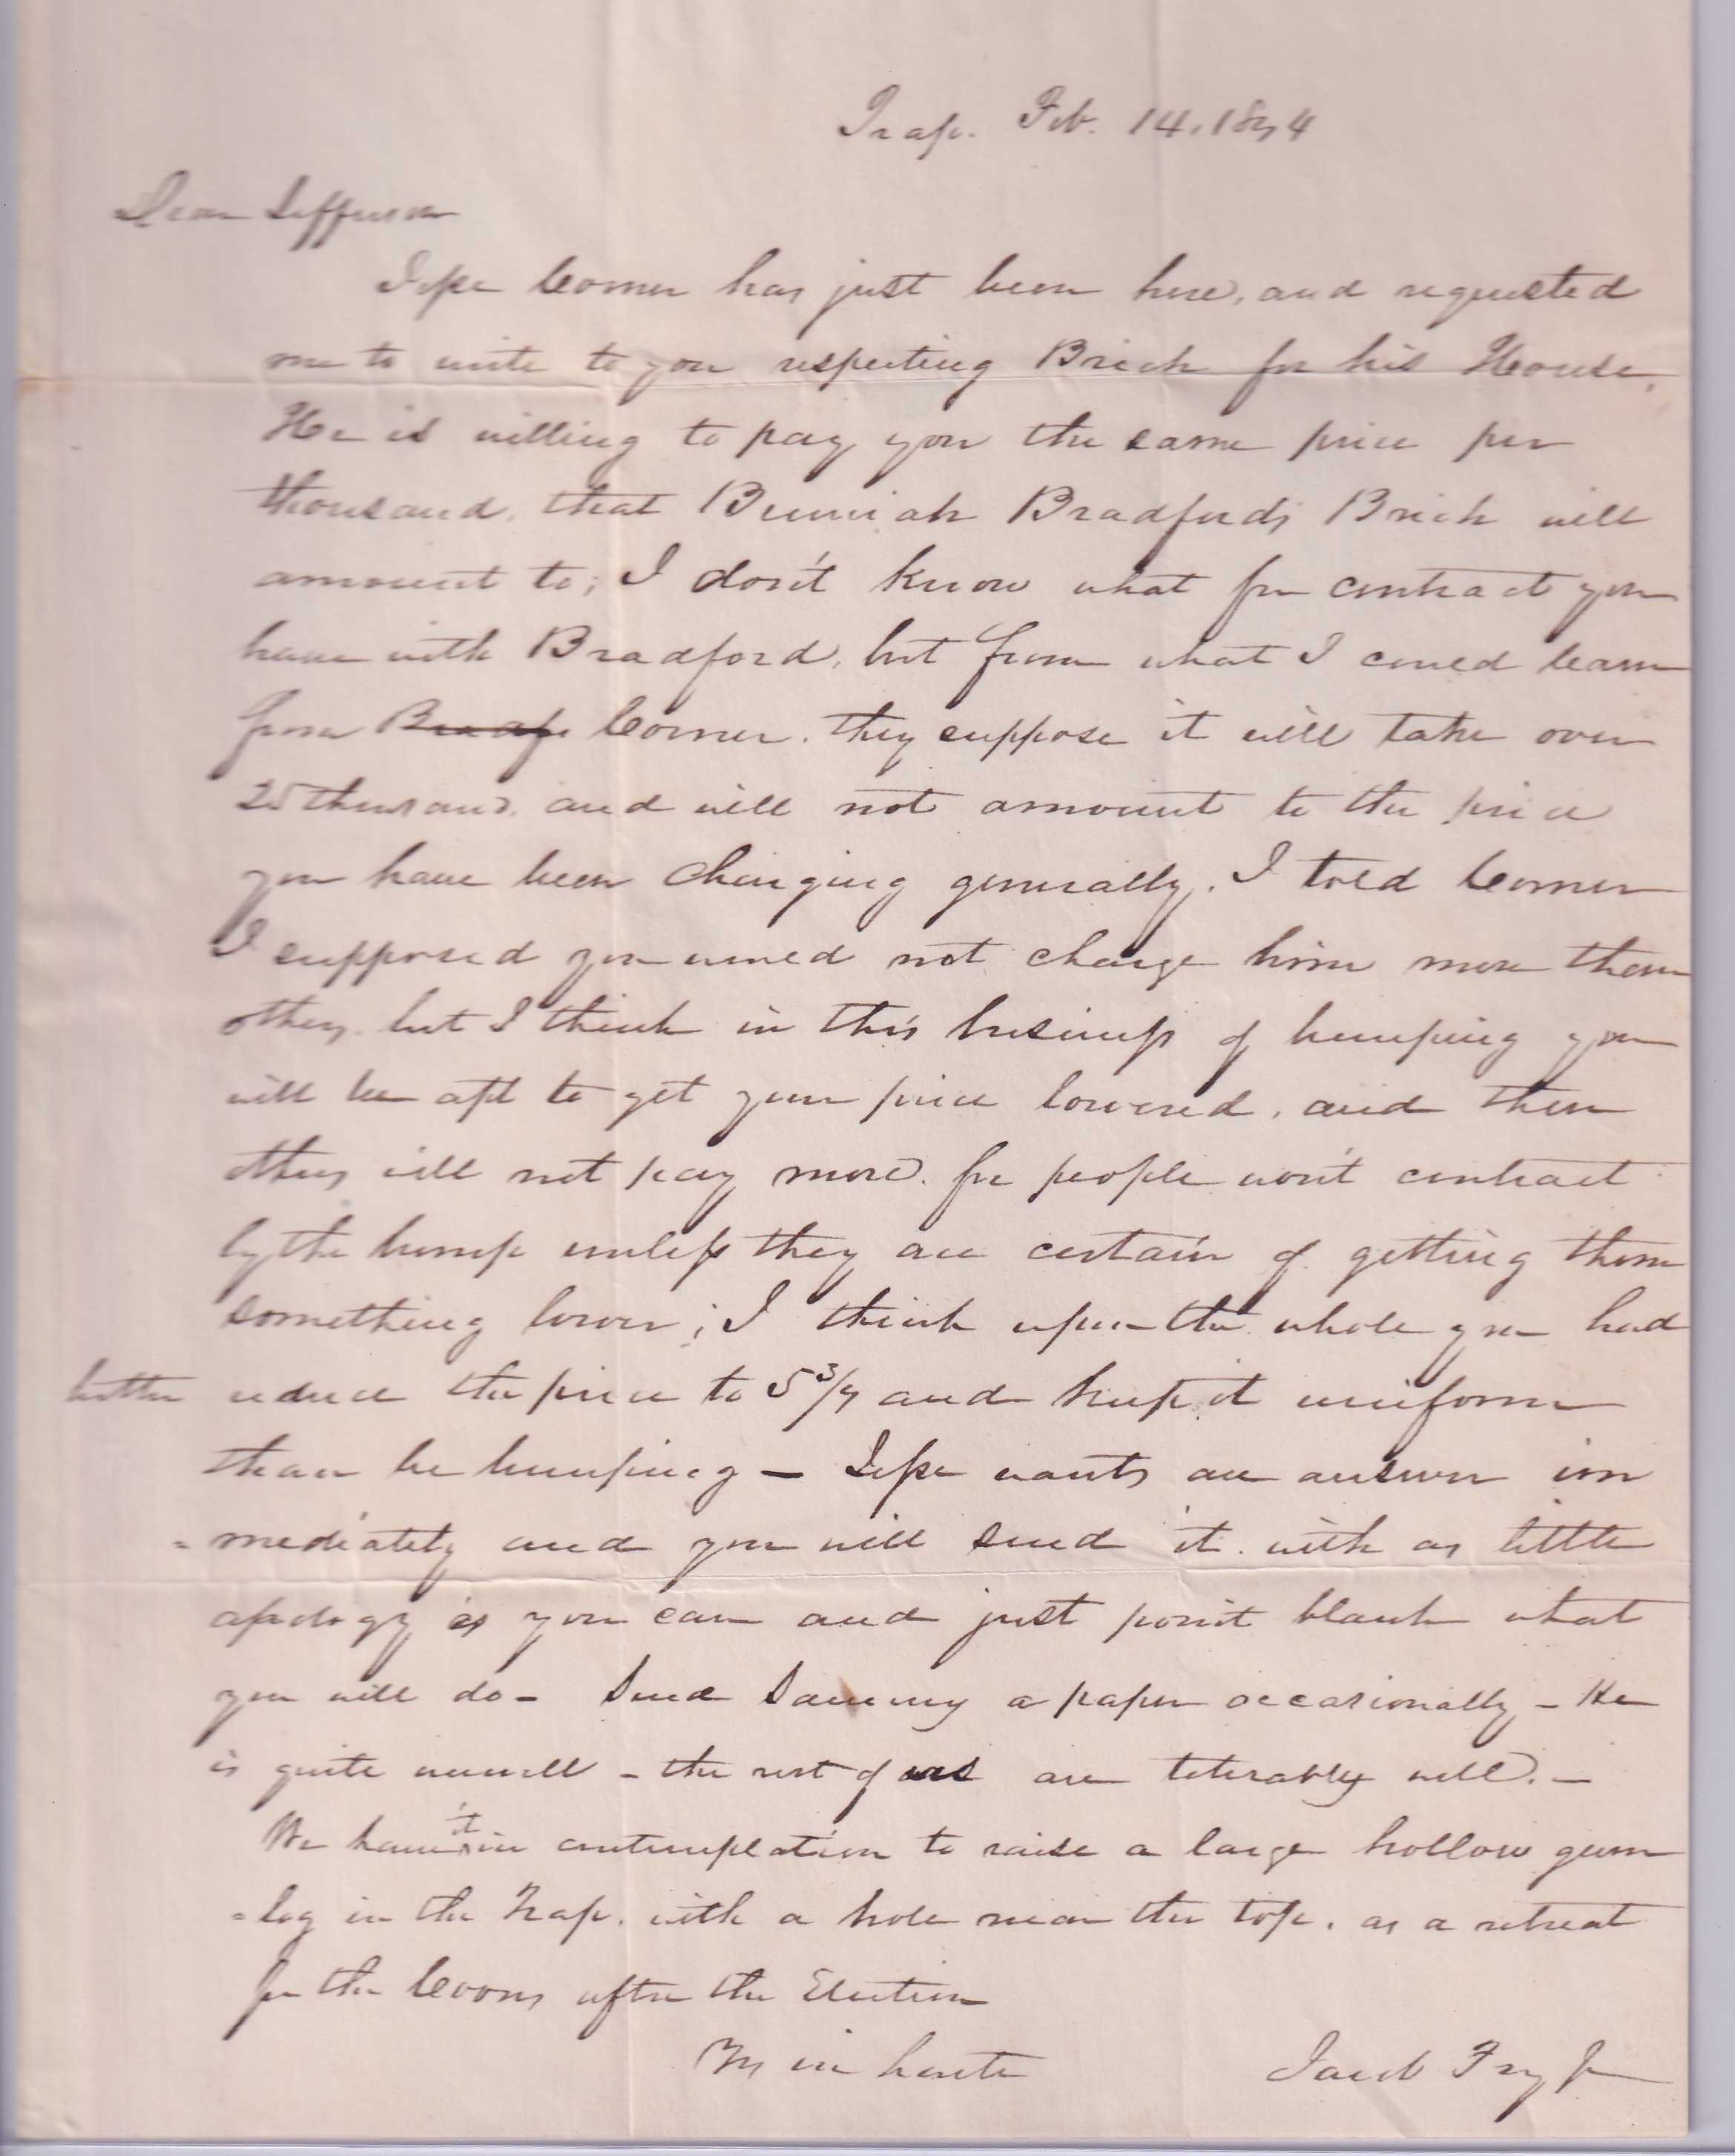 Trap. Feb. 14. 1844
Dear Jefferson
Jesse Comer has just been here, and requested
me to write to you respecting Brick for his House.
He is willing to pay you the same price per
thousand, that Bradfords Brick will
amount to; I don't know what for contract you
have with Bradford, but from what I could learn
from Comer. they suppose it will take over
25 thousand. and will not amount to the price
you have been charging generally. I told Comer
I supposed you would not charge him more than
others. but I think in this business of lumping you
will be apt to get your price lowered, and then
others will not pay more. for people won't contract
by the lump unless they are certain of getting them
something lower; I think upon the whole you had
better reduce the price to 5 3/4 and keep it uniform
than be lumping — Jesse wants an answer im
= mediately and you will send it. with as little
apology as you can and just point blank what
you will do - Send Sammy a paper occasionally - He
is quite unwell - the rest of us are tolerably well. —
We have it in contemplation to raise a large hollow gum
=log in the Trap. with a hole near the top. as a retreat
for the Coons after the Election
Yrs in haste Jacob Fry Jr